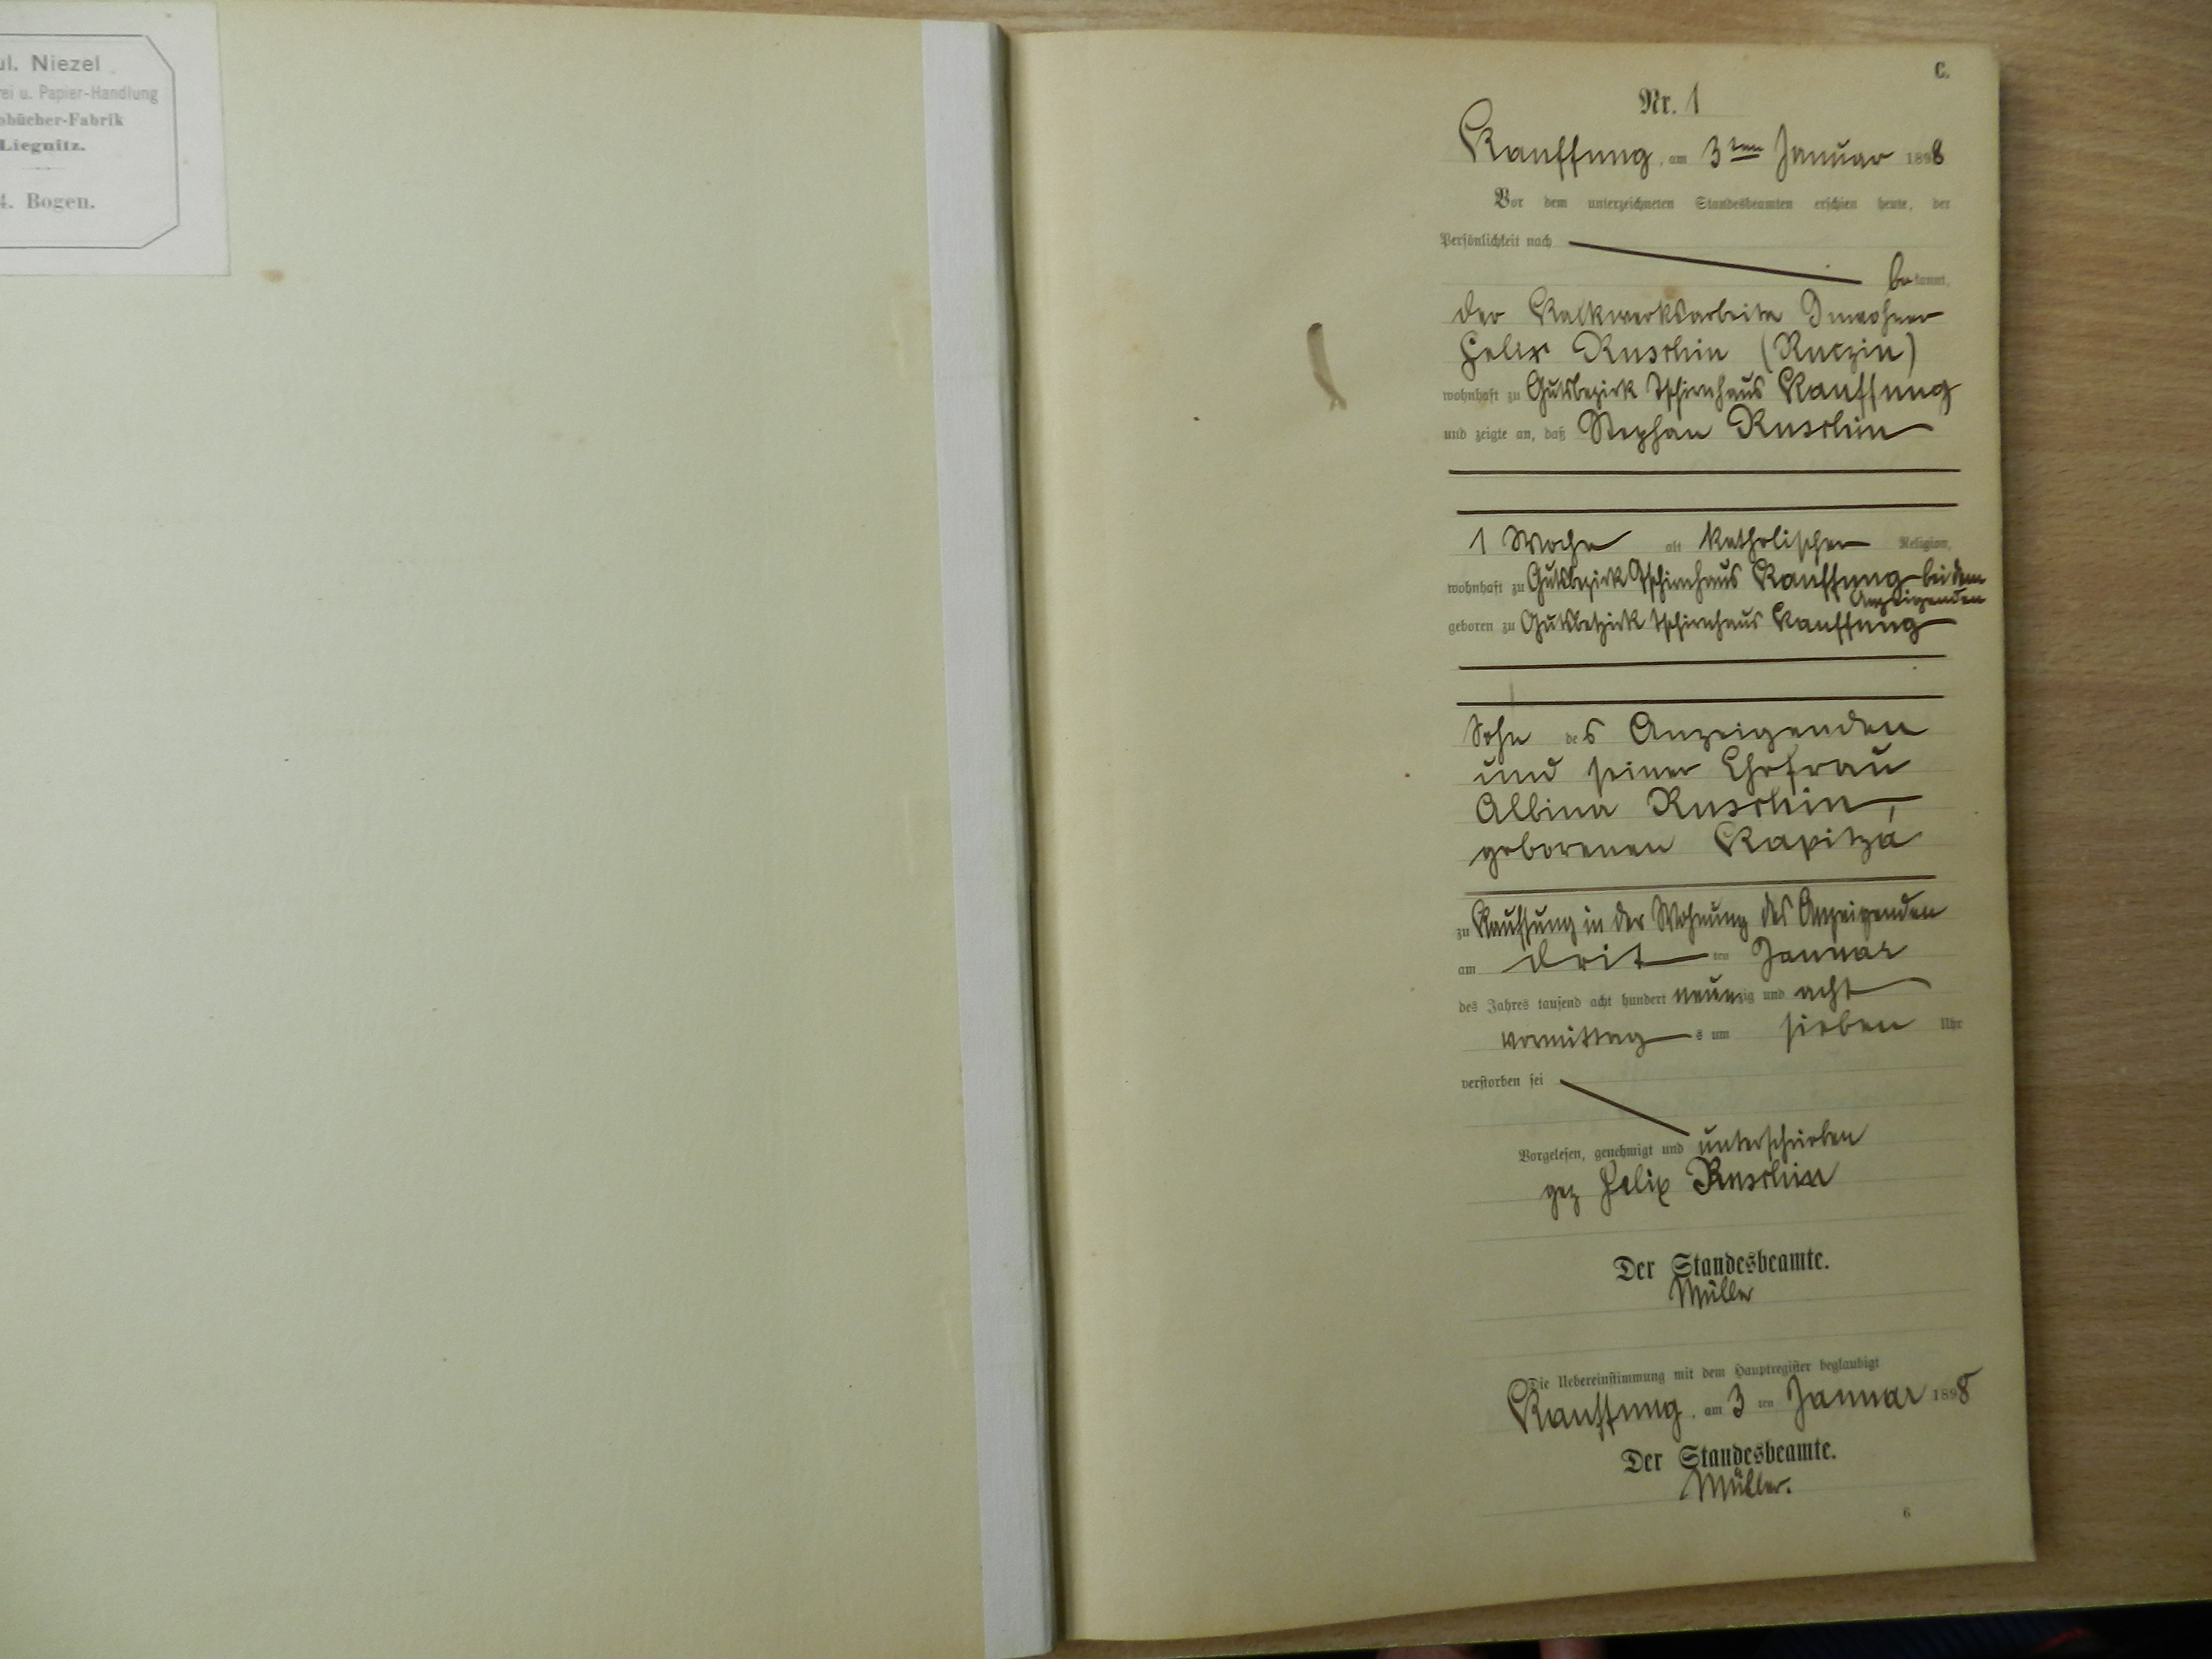 ul. Niezel
rei u. Papier-Handlung
obücher-Fabrik
Liegnitz.
4. Bogen.
C.
Nr. 1
Kauffung, am 3ten Januar 1898
Vor dem unterzeichneten Standesbeamten erschien heute, der
Persönlichkeit nach
bekannt,
der Kalkwerksarbeiter Inwohner
Felix Ruschin (Ruczin)
wohnhaft zu Gutsbezirk Tschirnhaus Kauffung
und zeigte an, daß Stephan Ruschin
1 Woche alt katholischer Religion,
wohnhaft zu Gutsbezirk Tschirnhaus Kauffung bei dem
Anzeigenden
geboren zu Gutsbetzirk Tschirnhaus Kauffung
Sohn des Anzeigenden
und seiner Ehefrau
Albina Ruschin,
geborenen Kapitza
zu Kauffung in der Wohnung des Anzeigenden
am dritten Januar
des Jahres tausend acht hundert neunzig und acht
vormittags um sieben Uhr
verstorben sei
Vorgelesen, genehmigt und unterschrieben
gez Felix Ruschin
Der Standesbeamte.
Müller
Die Uebereinstimmung mit dem Hauptregister beglaubigt
Kauffung, am 3ten Januar 1898
Der Standesbeamte.
Müller.
6